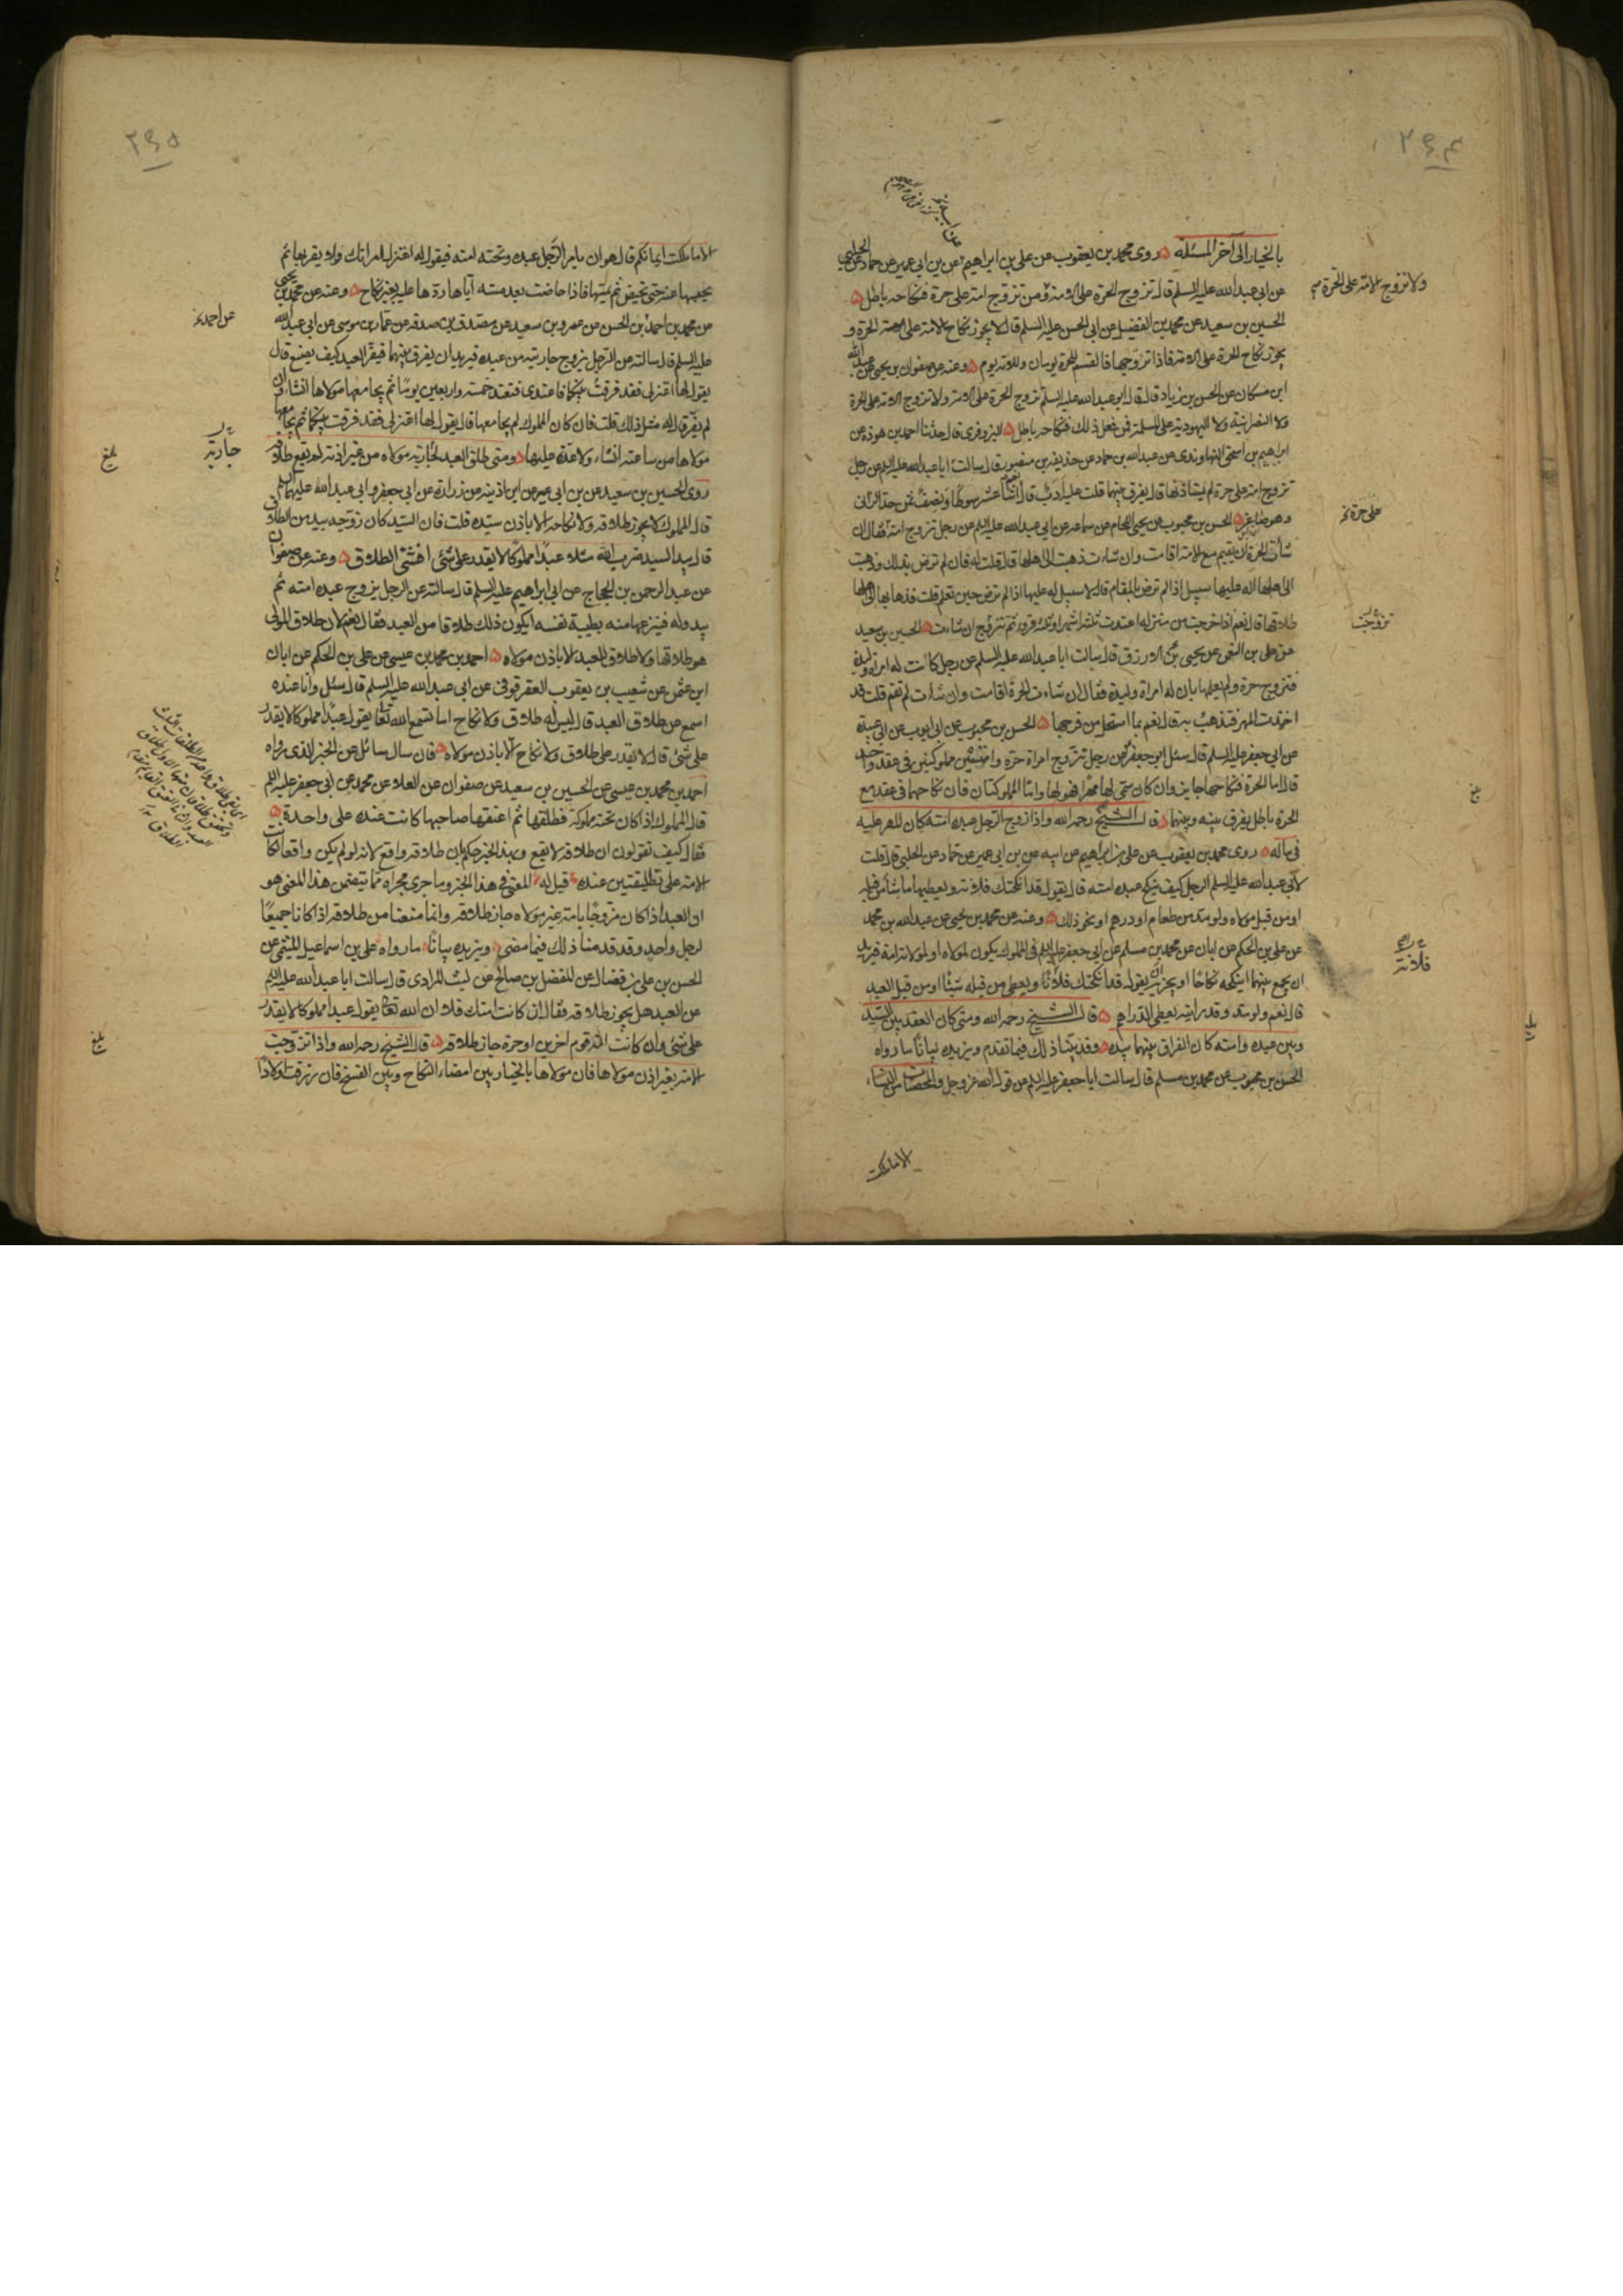 ٢٩٤
بالخيار الى آخر المسئله روى محمد بن يعقوب عن على بن ابراهيم عن ابن ابى عمير عن حماد عن الحلبى
عن ابى عبد الله عليه السلم قال تزوج الحرة على الامة ومن تزوج امة على حرة فنكاحه باطل
ولا تزوج الامة على الحرة
الحسين بن سعيد عن محمد بن الفضيل عن ابى الحسن عليه السلم قال لا يجوز نكاح الامة على الحرة و
يجوز نكاح الحرة على الامة فاذا تزوجها فالقسم للحرة يومان وللامة يوم وعنه عن صفوان بن يحيى عن عبد الله
ابن مسكان عن الحسن بن زياد قال قال ابو عبد الله عليه السلم تزوج الحرة على الامة ولا تزوج الامة على الحرة
ولا النصرانية ولا اليهودية على المسلمة فمن فعل ذلك فنكاحه باطل البزوفرى قال حدثنا احمد بن هوذه عن
ابراهيم بن اسحق النهاوندى عن عبد الله بن حماد عن حذيفة بن منصور قال سالت ابا عبد الله عليه السلم عن رجل
تزوج امة على حرة لم يستاذنها قال يفرق بينهما قلت عليه ادب قال اثنا عشر سوطا ونصف ثمن حد الزانى
على حرة
وهو صاغر الحسن بن محبوب عن يحيى اللحام عن سماعة عن ابى عبد الله عليه السلم عن رجل تزوج امة فقال ان
شأت الحرة ان تقيم مع الامة اقامت وان شاءت ذهبت الى اهلها قال قلت له فان لم ترض بذلك وذهبت
الى اهلها اله عليها سبيل اذا لم ترض بالمقام قال لا سبيل له عليها اذا لم ترض حين تعلم قلت فذهابها الى اهلها
طلاقها قال نعم اذا خرجت من منزله اعتدت ثلثة اشهر او ثلثة قروء ثم تتزوج ان شاءت الحسين بن سعيد
تزوجت
عن على بن النعمن عن يحيى بن الازرق قال سالت ابا عبد الله عليه السلم عن رجل كانت له امراة وليدة
فتزوج حرة ولم يعلمها بان له امراة وليدة فقال ان شاءت الحرة اقامت وان شاءت لم تقم قلت قد
اخذت المهر فتذهب به قال نعم بما استحل من فرجها الحسن بن محبوب عن ابى ايوب عن ابى عبيدة
عن ابى جعفر عليه السلم قال سئل ابو جعفر عن رجل تزوج امراة حرة وامتين مملوكتين فى عقد واحد
قال اما الحرة فنكاحها جايز وان كان سمى لها مهرا فهو لها واما المملوكتان فان نكاحهما فى عقد مع
بلغ
الحرة باطل يفرق بينه وبينهما قال الشيخ رحمه الله واذا زوج الرجل عبده امته كان المهر عليه
فى ماله روى محمد بن يعقوب عن على بن ابراهيم عن ابيه عن ابن ابى عمير عن حماد عن الحلبى قال قلت
لابى عبد الله عليه السلم الرجل كيف ينكح عبده امته قال يقول قد انكحتك فلانة ويعطيها ما شاء من قبله
او من قبل مولاه ولو مد من طعام او درهم او نحو ذلك وعنه عن محمد بن يحيى عن عبد الله بن محمد
عن على بن الحكم عن ابان عن محمد بن مسلم عن ابى جعفر عليه السلم فى المملوك يكون لمولاه او لمولاته امة فيريد
فلانة
ان يجمع بينهما اينكحه نكاحا او يجزيه ان يقول قد انكحتك فلانا ويعطى من قبله شيئا او من قبل العبد
قال نعم ولو مد وقد رايته يعطى الدراهم قال الشيخ رحمه الله ومتى كان العقد بين السيد
وبين عبده وامته كان الفراق بينهما بيده وقد بينا ذلك فيما تقدم ويزيده بيانا ما رواه
الحسن بن محبوب عن محمد بن مسلم قال سالت ابا جعفر عليه السلم عن قول الله عز وجل والمحصنات من النساء
الا ما ملكت
٢٩٥
الا ما ملكت ايمانكم قال هو ان يامر الرجل عبده وتحته امته فيقول له اعتزل امراتك ولا يقربها ثم
يحبسها عنه حتى تحيض ثم يمسها فاذا حاضت بعد مسه اياها ردها عليه بغير نكاح وعنه عن محمد بن يحيى
عن محمد بن احمد بن الحسن عن عمرو بن سعيد عن مصدق بن صدقة عن عمار بن موسى عن ابى عبد الله
عن احمد
عليه السلم قال سالته عن الرجل يزوج جاريته من عبده فيريد ان يفرق بينهما فيفر العبد كيف يصنع قال
يقول لها اعتزلى فقد فرقت بينكما فاعتدى فتعتد خمسة واربعين يوما ثم يجامعها مولاها ان شاء وان
لم يفر قال له مثل ذلك قلت فان كان المملوك لم يجامعها قال يقول لها اعتزلى فقد فرقت بينكما ثم يجامعها
مولاها من ساعته ان شاء ولا عدة عليها ومتى طلق العبد لجارية مولاه من غير اذنه لم يقع طلاقه
جارية
بلغ
روى الحسين بن سعيد عن ابن ابى عمير عن ابن اذينة عن زرارة عن ابى جعفر وابى عبد الله عليهما السلم
قال المملوك لا يجوز طلاقه ولا نكاحه الا باذن سيده قلت فان السيد كان زوجه بيد من الطلاق
قال بيد السيد ضرب الله مثلا عبدا مملوكا لا يقدر على شئ افشئ الطلاق وعنه عن صفوان
عن عبد الرحمن بن الحجاج عن ابى ابراهيم عليه السلم قال سالته عن الرجل يزوج عبده امته ثم
يبدو له فينزعها منه بطيبة نفسه ايكون ذلك طلاقا من العبد فقال نعم لان طلاق المولى
هو طلاقها ولا طلاق للعبد الا باذن مولاه احمد بن محمد بن عيسى عن على بن الحكم عن ابان
ابن عثمن عن شعيب بن يعقوب العقرقوفى عن ابى عبد الله عليه السلم قال سئل وانا عنده
اسمع عن طلاق العبد قال ليس له طلاق ولا نكاح اما تسمع الله تعالى يقول عبدا مملوكا لا يقدر
على شئ قال لا يقدر على طلاق ولا نكاح الا باذن مولاه فان سال سائل عن الخبر الذى رواه
احمد بن محمد بن عيسى عن الحسين بن سعيد عن صفوان عن العلا عن محمد عن ابى جعفر عليه السلم
قال المملوك اذا كان تحته مملوكة فطلقها ثم اعتقها صاحبها كانت عنده على واحدة
فقال كيف تقولون ان طلاقه لا يقع وبهذا الخبر حكم بان طلاقه واقع لانه لو لم يكن واقعا لكانت
الامة على تطليقتين عنده قيل له المعنى فى هذا الخبر وما جرى مجراه مما يتضمن هذا المعنى هو
ان العبد اذا كان مزوجا بامة غير مولاه جاز طلاقه وانما منعنا من طلاقه اذا كانا جميعا
لرجل واحد وقد قدمنا ذلك فيما مضى ويزيده بيانا ما رواه على بن اسماعيل الميثمى عن
الحسن بن على بن فضال عن المفضل بن صالح عن ليث المرادى قال سالت ابا عبد الله عليه السلم
عن العبد هل يجوز طلاقه فقال ان كانت امتك فلا ان الله تعالى يقول عبدا مملوكا لا يقدر
على شئ وان كانت امة قوم اخرين او حرة جاز طلاقه قال الشيخ رحمه الله واذا تزوجت
بلغ
الامة بغير اذن مولاها فان مولاها بالخيار بين امضاء النكاح وبين الفسخ فان رزقت اولادا